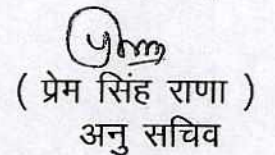 ( प्रेम सिंह राणा )
अनु सचिव